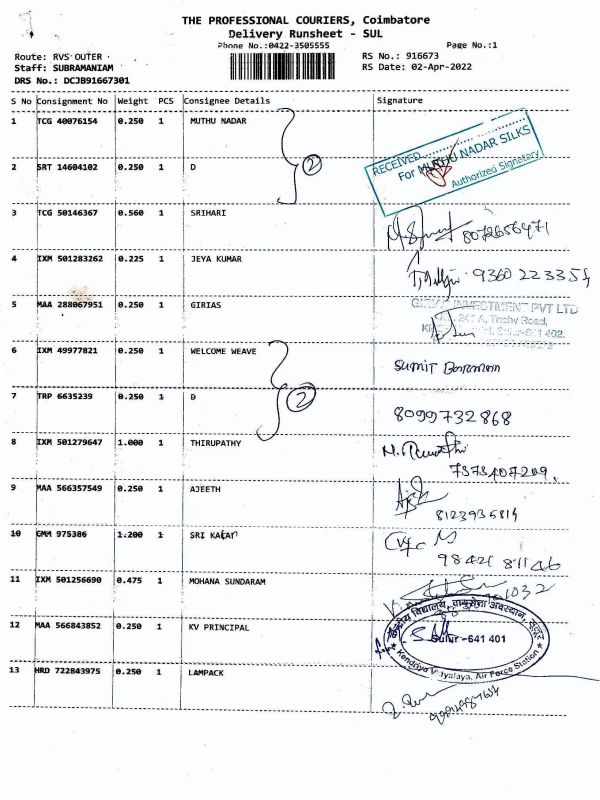 THE PROFESSIONAL COURIERS, Coimbatore
Delivery Runsheet - SUL
Phone No.:0422-3505555
Page No.:1
Route: RVS OUTER
Staff: SUBRAMANIAM
DRS No.: DCJB91667301
RS No.: 916673
RS Date: 02-Apr-2022
S No Consignment No Weight PCS Consignee Details Signature
1 TCG 40076154 0.250 1 MUTHU NADAR
2 SRT 14604102 0.250 1 D
2
RECEIVED
For MUTHU NADAR SILKS
Authorized Signetary
3 TCG 50146367 0.560 1 SRIHARI
8072656471
4 IXM 501283262 0.225 1 JEYA KUMAR
9360 223354
5 MAA 288067951 0.250 1 GIRIAS
GIRIAS INVESTMENT PVT LTD
Trichy Road,
6 IXM 49977821 0.250 1 WELCOME WEAVE
Sumit Barman
7 TRP 6635239 0.250 1 D
2
8099732868
8 IXM 501279647 1.000 1 THIRUPATHY
7373407209
9 MAA 566357549 0.250 1 AJEETH
8123936814
10 GMM 975386 1.200 1 SRI KALAI
98421 81146
11 IXM 501256690 0.475 1 MOHANA SUNDARAM
12 MAA 566843852 0.250 1 KV PRINCIPAL
केन्द्रीय विद्यालय, वायुसेना अवस्थान, सुलूर
Sulur -641 401
Kendriya Vidyalaya, Air Force Station
13 HRD 722843975 0.250 1 LAMPACK